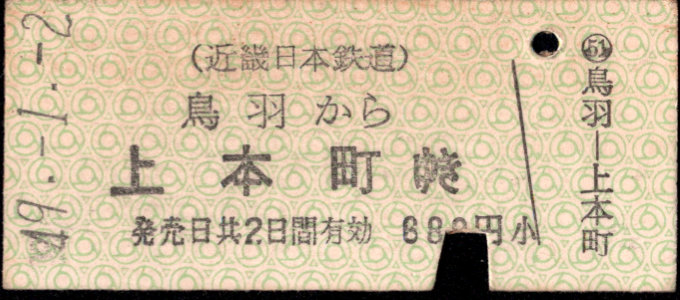 49.-1.-2
(近畿日本鉄道)
鳥羽から
上本町ゆき
発売日共2日間有効 680円 小
51
鳥羽―上本町